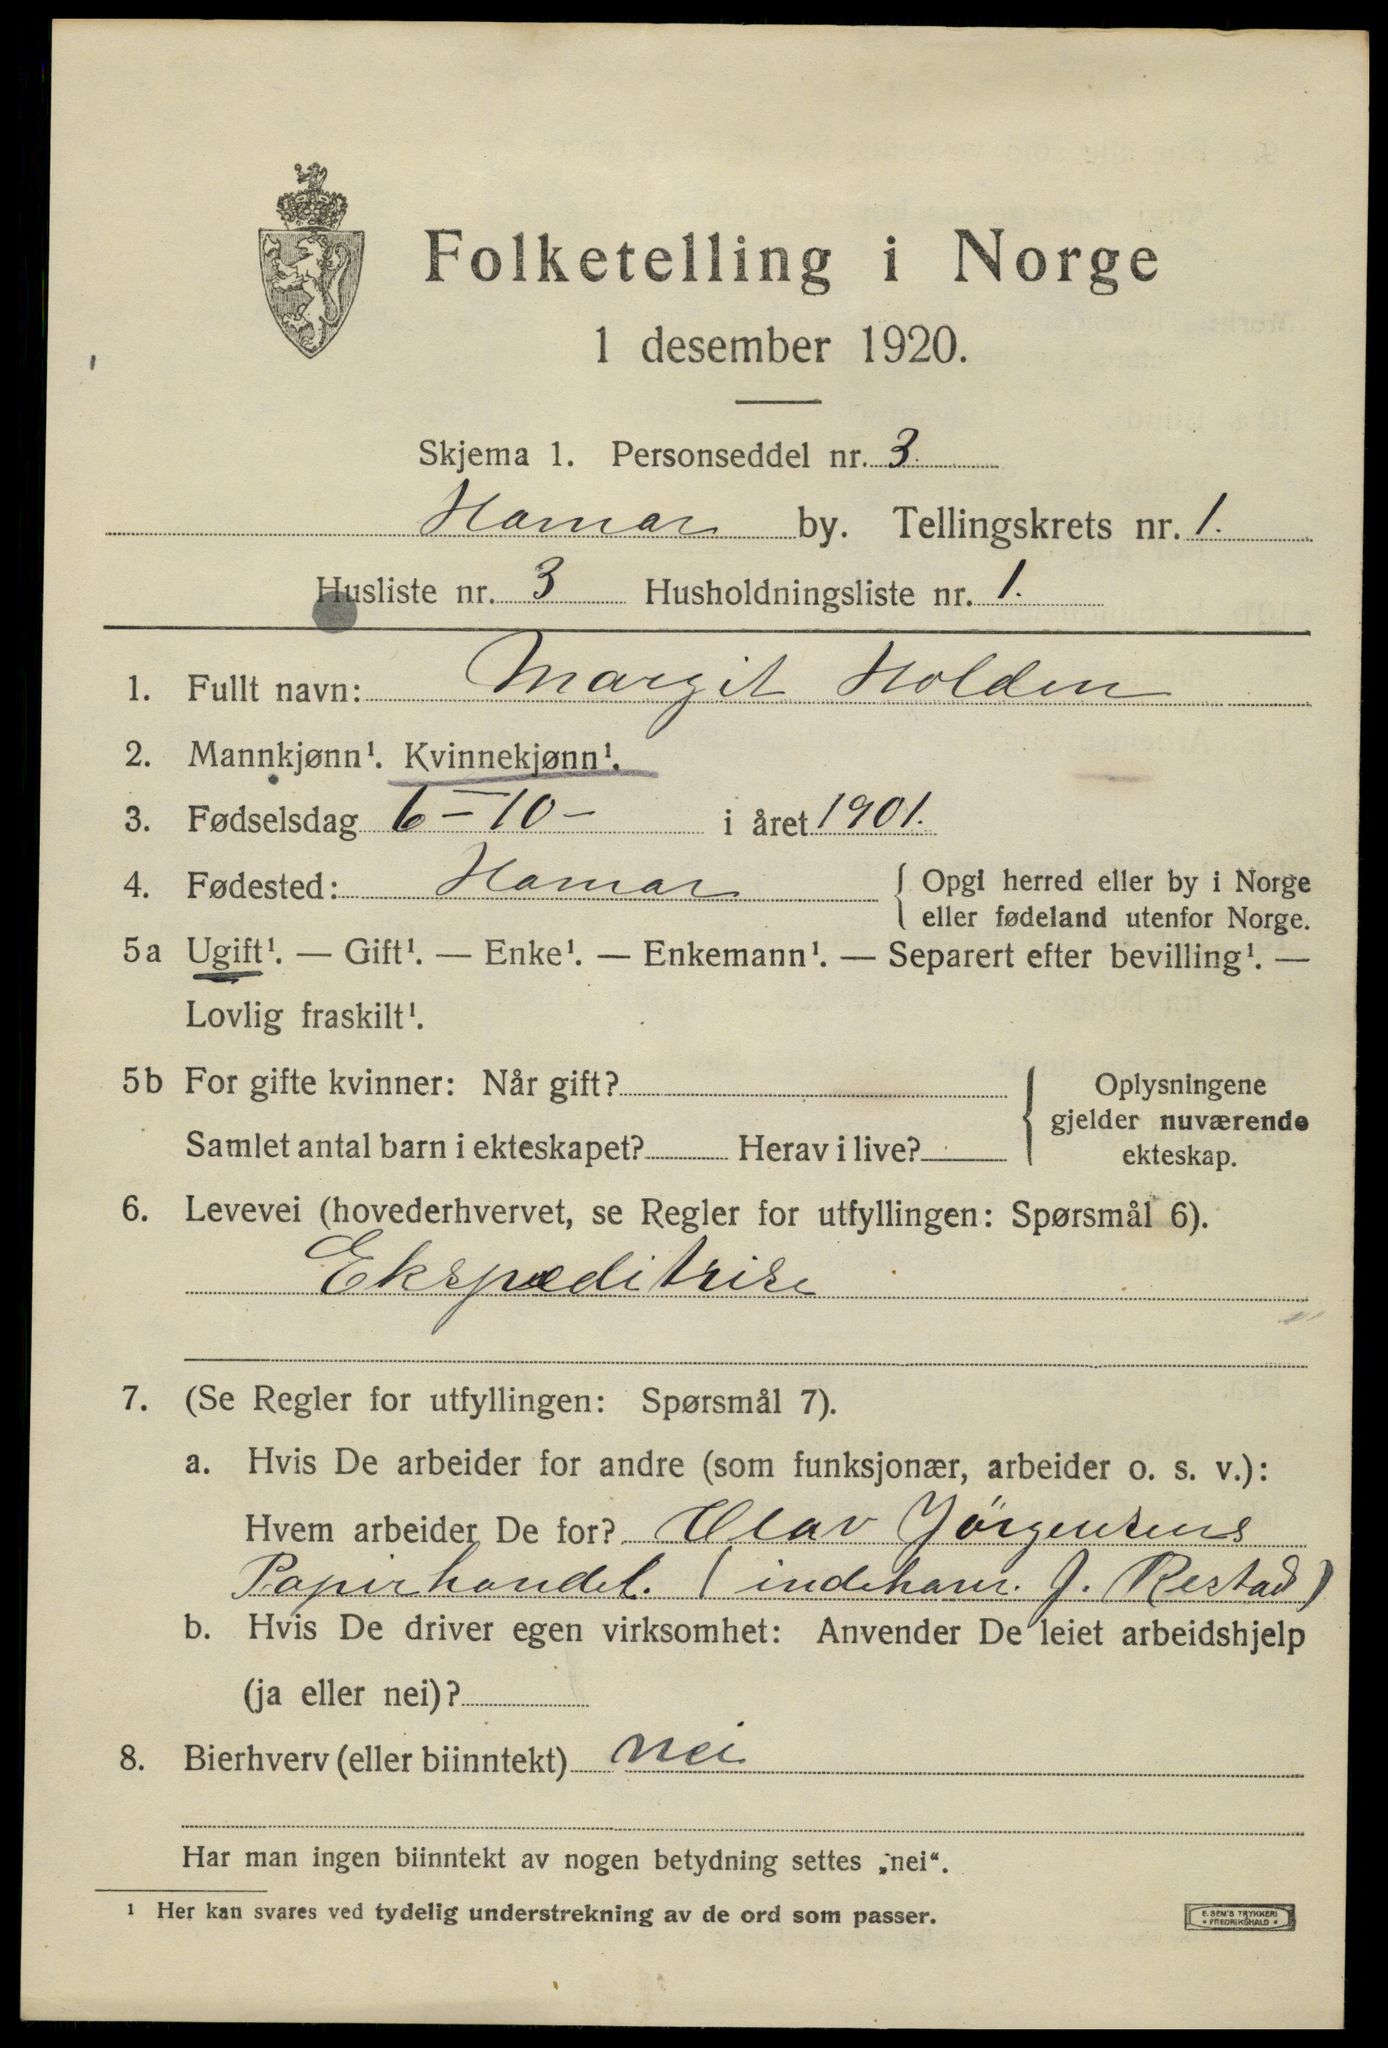 Folketelling i Norge
1 desember 1920.
Skjema 1. Personseddel nr. 3.
Hamar by. Tellingskrets nr. 1.
Husliste nr. 3 Husholdningsliste nr. 1.
1. Fullt navn: Margit Holden
2. Mannkjønn¹. Kvinnekjønn¹.
3. Fødselsdag 6 - 10 - i året 1901.
4. Fødested: Hamar { Opgi herred eller by i Norge
eller fødeland utenfor Norge.
5a Ugift¹. — Gift¹. — Enke¹. — Enkemann¹. — Separert efter bevilling¹. —
Lovlig fraskilt¹.
5b For gifte kvinner: Når gift?
Samlet antal barn i ekteskapet? Herav i live?
{ Oplysningene
gjelder nuværende
ekteskap.
6. Levevei (hovederhvervet, se Regler for utfyllingen: Spørsmål 6).
Ekspeditrise
7. (Se Regler for utfyllingen: Spørsmål 7).
a. Hvis De arbeider for andre (som funksjonær, arbeider o. s. v.):
Hvem arbeider De for? Olav Jörgensens
Papirhandel. (indehaver. J. Restad)
b. Hvis De driver egen virksomhet: Anvender De leiet arbeidshjelp
(ja eller nei)?
8. Bierhverv (eller biinntekt) nei
Har man ingen biinntekt av nogen betydning settes „nei“.
¹ Her kan svares ved tydelig understrekning av de ord som passer.
E. SEM'S TRYKKERI
• FREDRIKSHALD •